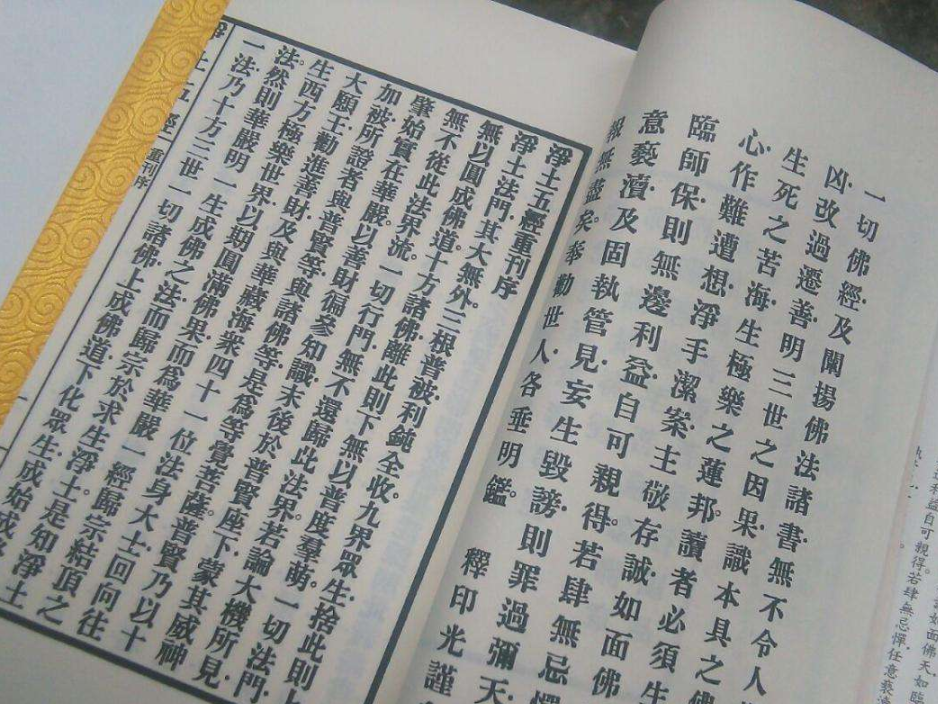 如面佛天如臨
利益自可親得。若肆無忌憚任意褻瀆
一切佛經、及闡揚佛法諸書、無不令人
凶、改過遷善、明三世之因果、識本具之佛
生死之苦海、生極樂之蓮邦、讀者必須生
心、作難遭想、淨手潔案、主敬存誠、如面佛
臨師保、則無邊利益、自可親得。若肆無忌憚
意褻瀆、及固執管見、妄生毀謗、則罪過彌天
報無盡矣、奉勸世人、各垂明鑑。 釋印光謹
淨土五經重刊序
淨土法門、其大無外。三根普被、利鈍全收。九界眾生、捨此則上
無以圓成佛道。十方諸佛、離此則下無以普度羣萌。一切法門、
無不從此法界流。一切行門、無不還歸此法界。若論大機所見、
肇始實在華嚴。以善財徧參知識、末後於普賢座下、蒙其威神
加被、所證者與普賢等、與諸佛等、是為等覺菩薩。普賢乃以十
大願王、勸進善財、及與華藏海眾、四十一位法身大士、回向往
生西方極樂世界、以期圓滿佛果。而為華嚴一經歸宗結頂之
法。然則華嚴明一生成佛之法、而歸宗於求生淨土。是知淨土
一法、乃十方三世一切諸佛、上成佛道、下化眾生、成始成終
淨土五經 重刊序 一